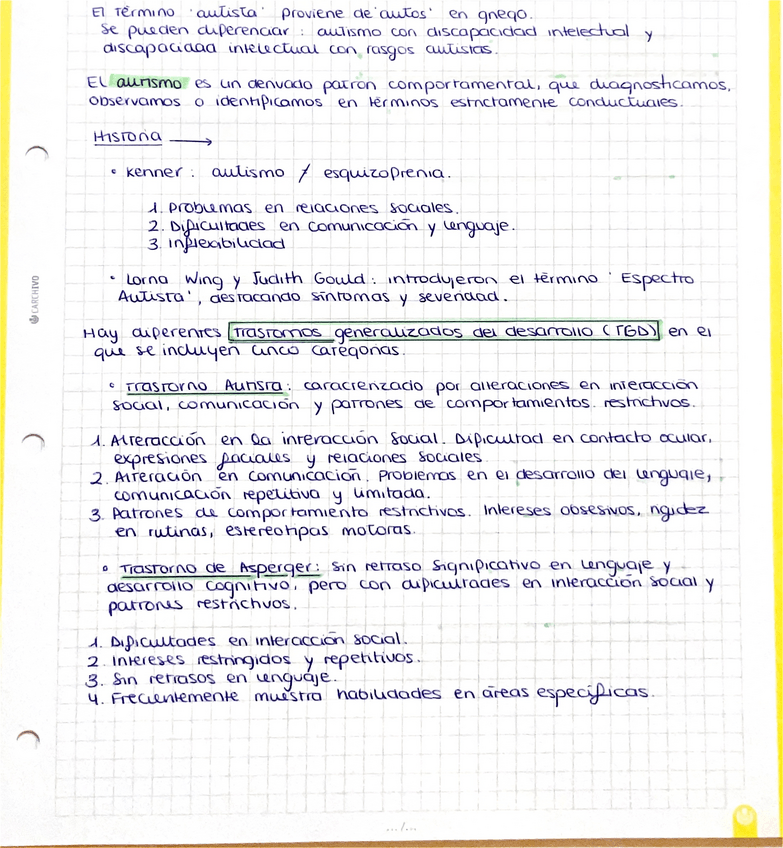 El término 'autista' proviene de 'autos' en griego.
Se pueden diferenciar: autismo con discapacidad intelectual y
discapacidad intelectual con rasgos autistas.
El autismo es un derivado patrón comportamental, que diagnosticamos,
observamos o identificamos en términos estrictamente conductuales.
Historia →
• Kenner: autismo ≠ esquizofrenia.
1. Problemas en relaciones sociales.
2. Dificultades en comunicación y lenguaje.
3. Inflexibilidad
• Lorna Wing y Judith Gould: introdujeron el término 'Espectro
Autista', destacando síntomas y severidad.
Hay diferentes Trastornos generalizados del desarrollo (TGD) en el
que se incluyen cinco categorías.
• Trastorno Autista: caracterizado por alteraciones en interacción
social, comunicación y patrones de comportamientos restrictivos.
1. Alteracción en la interacción social. Dificultad en contacto ocular,
expresiones faciales y relaciones sociales.
2. Alteración en comunicación. Problemas en el desarrollo del lenguaje,
comunicación repetitiva y limitada.
3. Patrones de comportamiento restrictivos. Intereses obsesivos, rigidez
en rutinas, estereotipas motoras.
• Trastorno de Asperger: Sin retraso significativo en lenguaje y
desarrollo cognitivo, pero con dificultades en interacción social y
patrones restrictivos.
1. Dificultades en interacción social.
2. Intereses restringidos y repetitivos.
3. Sin retrasos en lenguaje.
4. Frecuentemente muestra habilidades en áreas específicas.
CARCHIVO
.../...